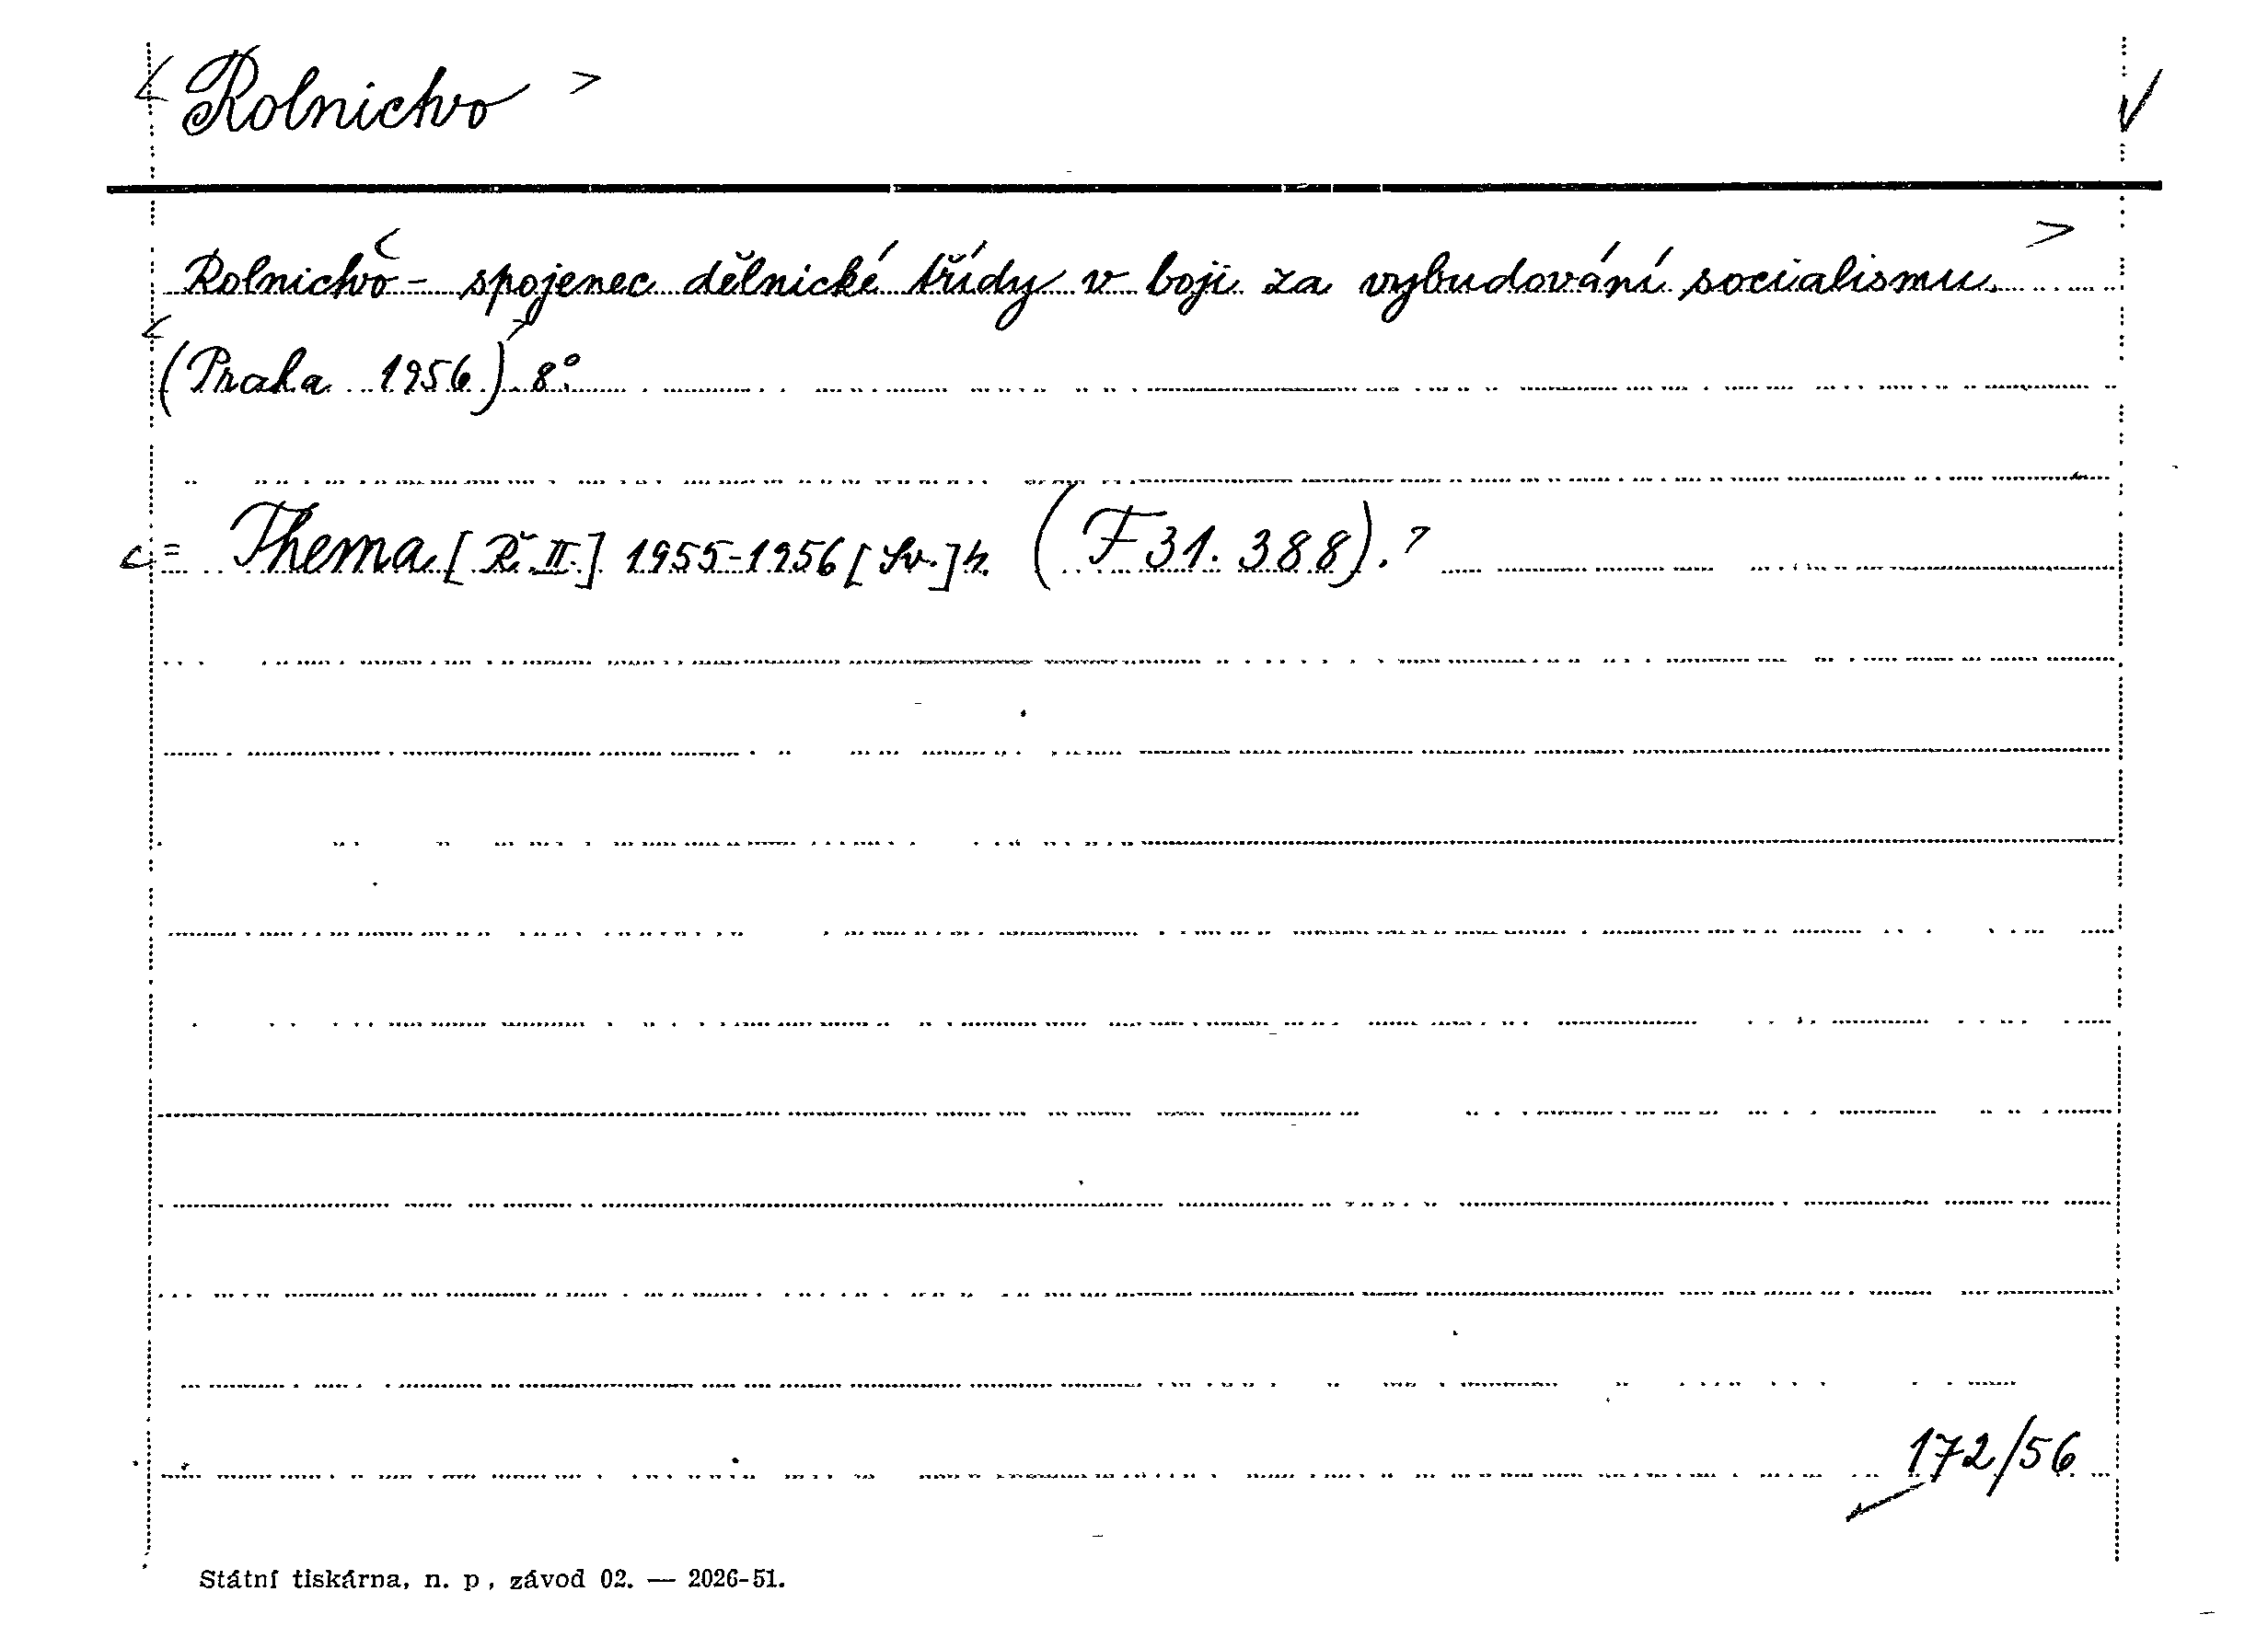 < Rolnictvo >
Rolnictvo - spojenec dělnické třídy v boji za vybudování socialismu.
(Praha 1956.) 8°.
= Thema [Ř. II.] 1955-1956 [Sv.] 4. (F 31.388).
172/56
Státní tiskárna, n. p., závod 02. — 2026-51.